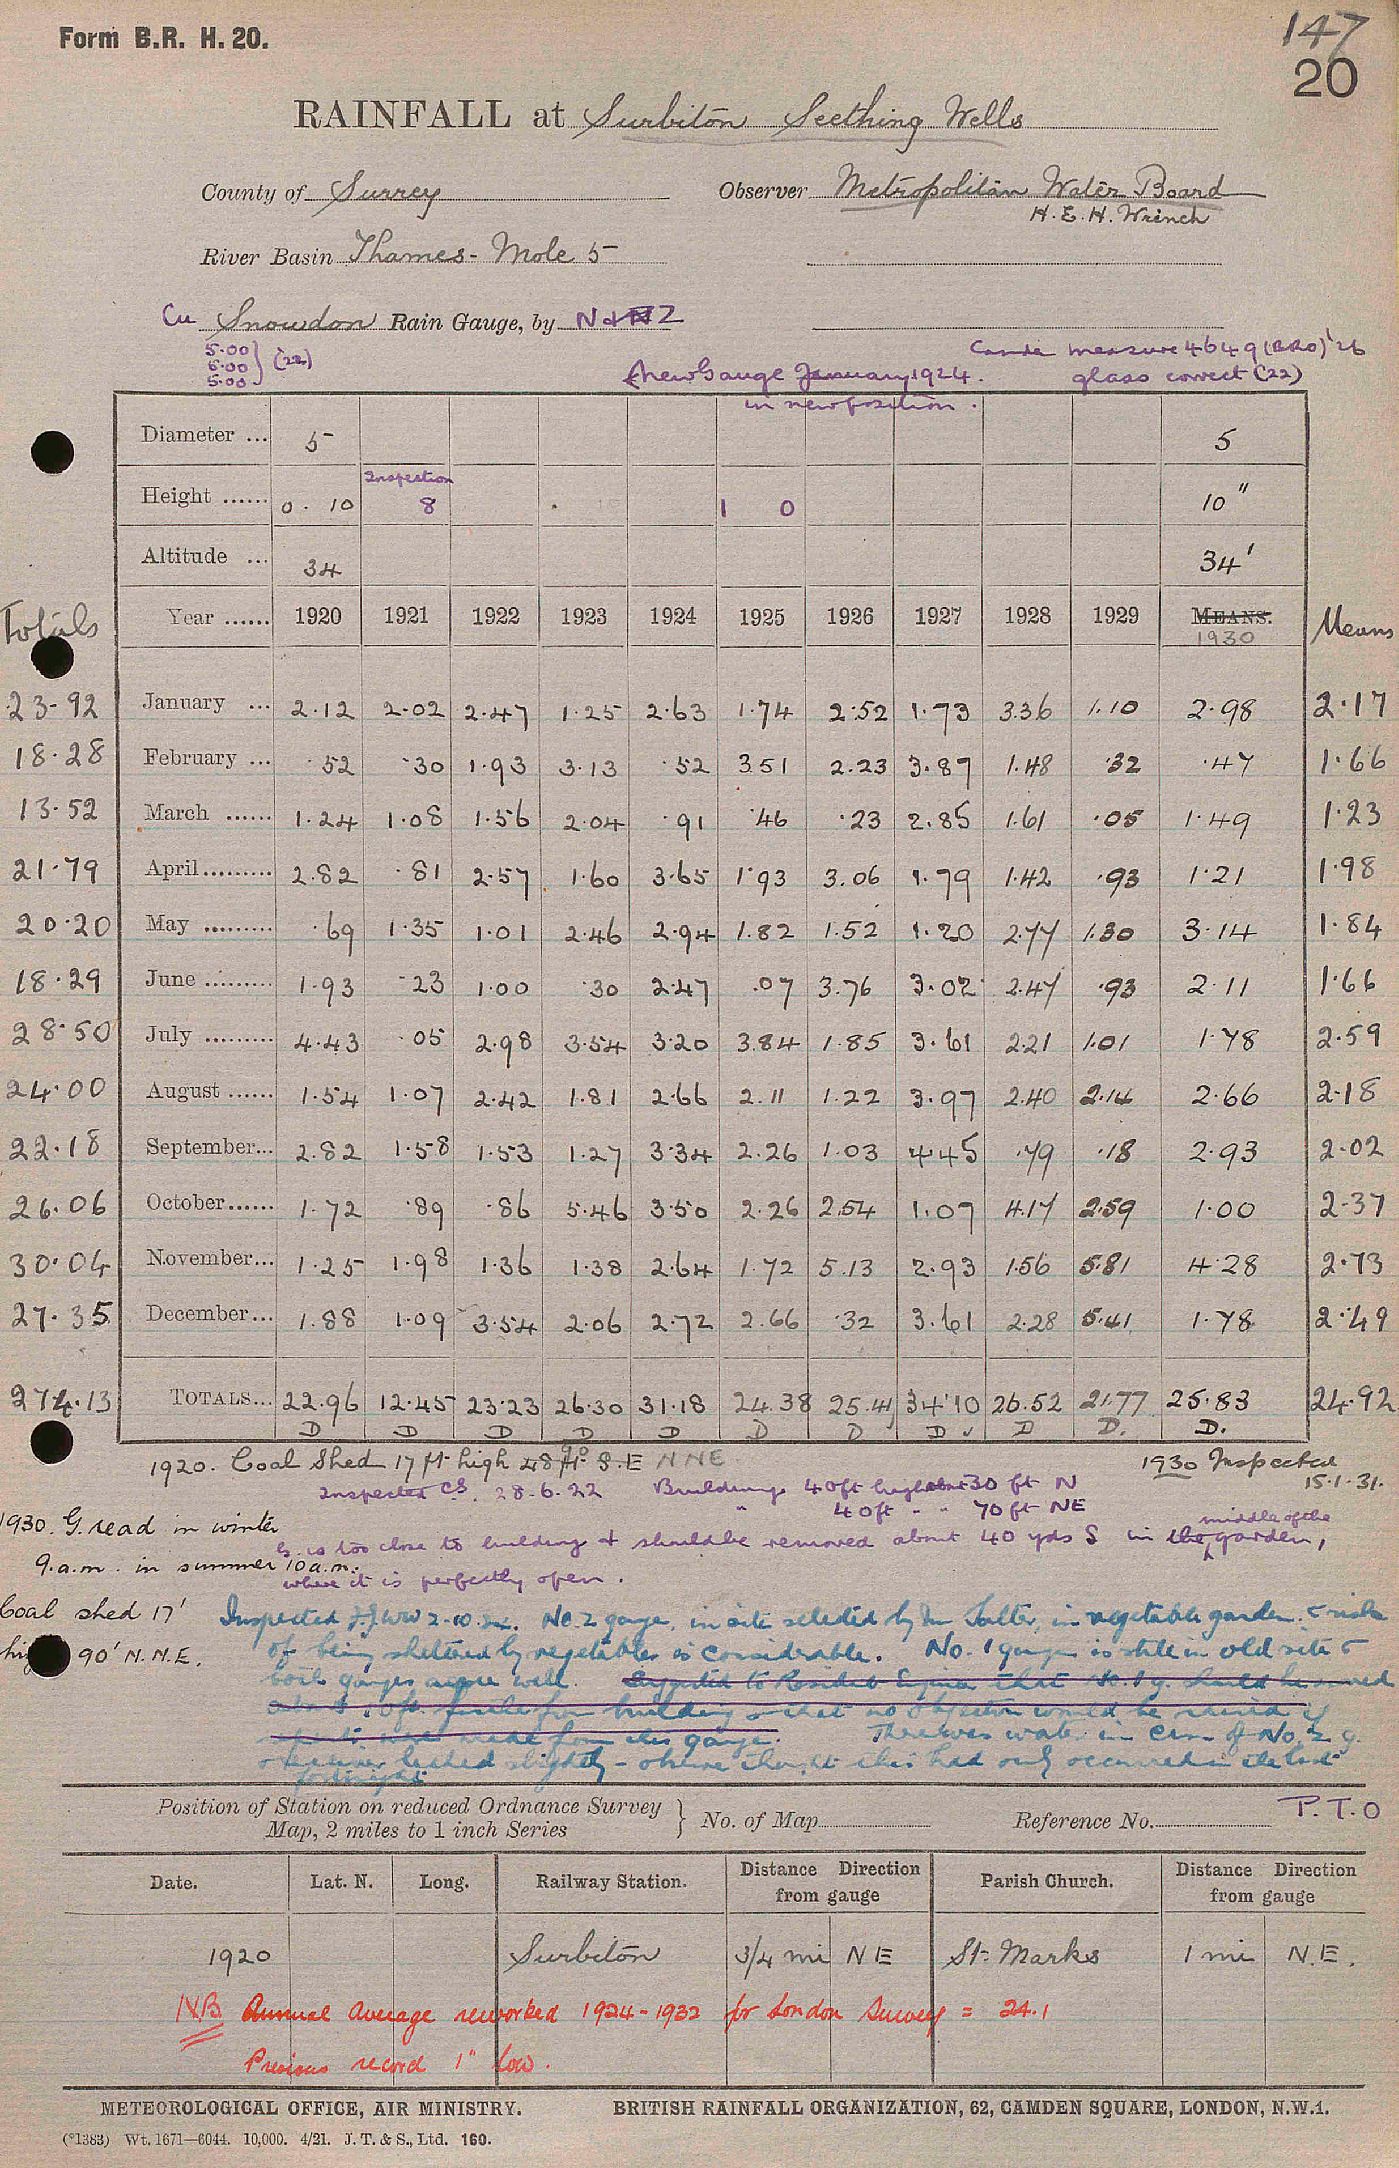 Form B.R. H. 20.
147
20
RAINFALL at Surbiton Seething Wells
County of Surrey Observer Metropolitan Water Board
H. E. H. Wrinch
River Basin Thames - Mole 5
Cu Snowdon Rain Gauge, by N & NZ
5.00
5.00 } (22)
5.00
measure 4649 (BRO) '26
New Gauge January 1924. glass correct (22)
in new position.
Diameter ... 5 5
Height ...... 0. 10 Inspection 8 1 0 10"
Altitude ... 34 34'
Totals Year ...... 1920 1921 1922 1923 1924 1925 1926 1927 1928 1929 MEANS. 1930 Means
23.92 January ... 2.12 2.02 2.47 1.25 2.63 1.74 2.52 1.73 3.36 1.10 2.98 2.17
18.28 February ... .52 .30 1.93 3.13 .52 3.51 2.23 3.87 1.48 .32 .47 1.66
13.52 March ...... 1.24 1.08 1.56 2.04 .91 .46 .23 2.85 1.61 .05 1.49 1.23
21.79 April ......... 2.82 .81 2.57 1.60 3.65 1.93 3.06 1.79 1.42 .93 1.21 1.98
20.20 May ......... .69 1.35 1.01 2.46 2.94 1.82 1.52 1.20 2.77 1.30 3.14 1.84
18.29 June ......... 1.93 .23 1.00 .30 2.47 .07 3.76 3.02 2.47 .93 2.11 1.66
28.50 July ......... 4.43 .05 2.98 3.54 3.20 3.84 1.85 3.61 2.21 1.01 1.78 2.59
24.00 August ...... 1.54 1.07 2.42 1.81 2.66 2.11 1.22 3.97 2.40 2.14 2.66 2.18
22.18 September... 2.82 1.58 1.53 1.27 3.34 2.26 1.03 4.45 .79 .18 2.93 2.02
26.06 October...... 1.72 .89 .86 5.46 3.50 2.26 2.54 1.07 4.17 2.59 1.00 2.37
30.04 November... 1.25 1.98 1.36 1.38 2.64 1.72 5.13 2.93 1.56 5.81 4.28 2.73
27.35 December... 1.88 1.09 3.54 2.06 2.72 2.66 .32 3.61 2.28 5.41 1.78 2.49
274.13 TOTALS... 22.96 12.45 23.23 26.30 31.18 24.38 25.41 34.10 26.52 21.77 25.83 24.92
D D D D D D D D D D. D.
1920. Coal Shed 17 ft high 48 ft S.E NNE 1930 Inspected
15.1.31.
Inspected CS. 28.6.22 Buildings 40ft high 30 ft N
" 40ft " " 70ft NE
1930. G. read in winter
9.a.m. in summer 10 a.m.
G is too close to building & should be removed about 40 yds S in the middle of the garden,
where it is perfectly open.
Coal shed 17'
high 90' N.N.E.
Inspected 2.10. No. 2 gauge, in site selected by Mr Salter, in vegetable garden & risk
of being sheltered by vegetables is considerable. No. 1 gauge is still in old site &
both gauges agree well. Suggested to Resident Engineer that No. 1 g. should be moved
10ft. further from building & that no objection would be raised if
from this gauge. There was water in can of No. 2 g.
leaked slightly - observer this had only occurred in the last
fortnight.
P.T.O
Position of Station on reduced Ordnance Survey
Map, 2 miles to 1 inch Series } No. of Map Reference No.
Date. Lat. N. Long. Railway Station. Distance Direction from gauge Parish Church. Distance Direction from gauge
1920 Surbiton 3/4 mi NE St. Marks 1 mi N.E.
NB Annual Average reworked 1924-1932 for London Survey = 24.1
Previous record 1" low.
METEOROLOGICAL OFFICE, AIR MINISTRY. BRITISH RAINFALL ORGANIZATION, 62, CAMDEN SQUARE, LONDON, N.W.1.
(*1383) Wt. 1671—6044. 10,000. 4/21. J. T. & S., Ltd. 160.